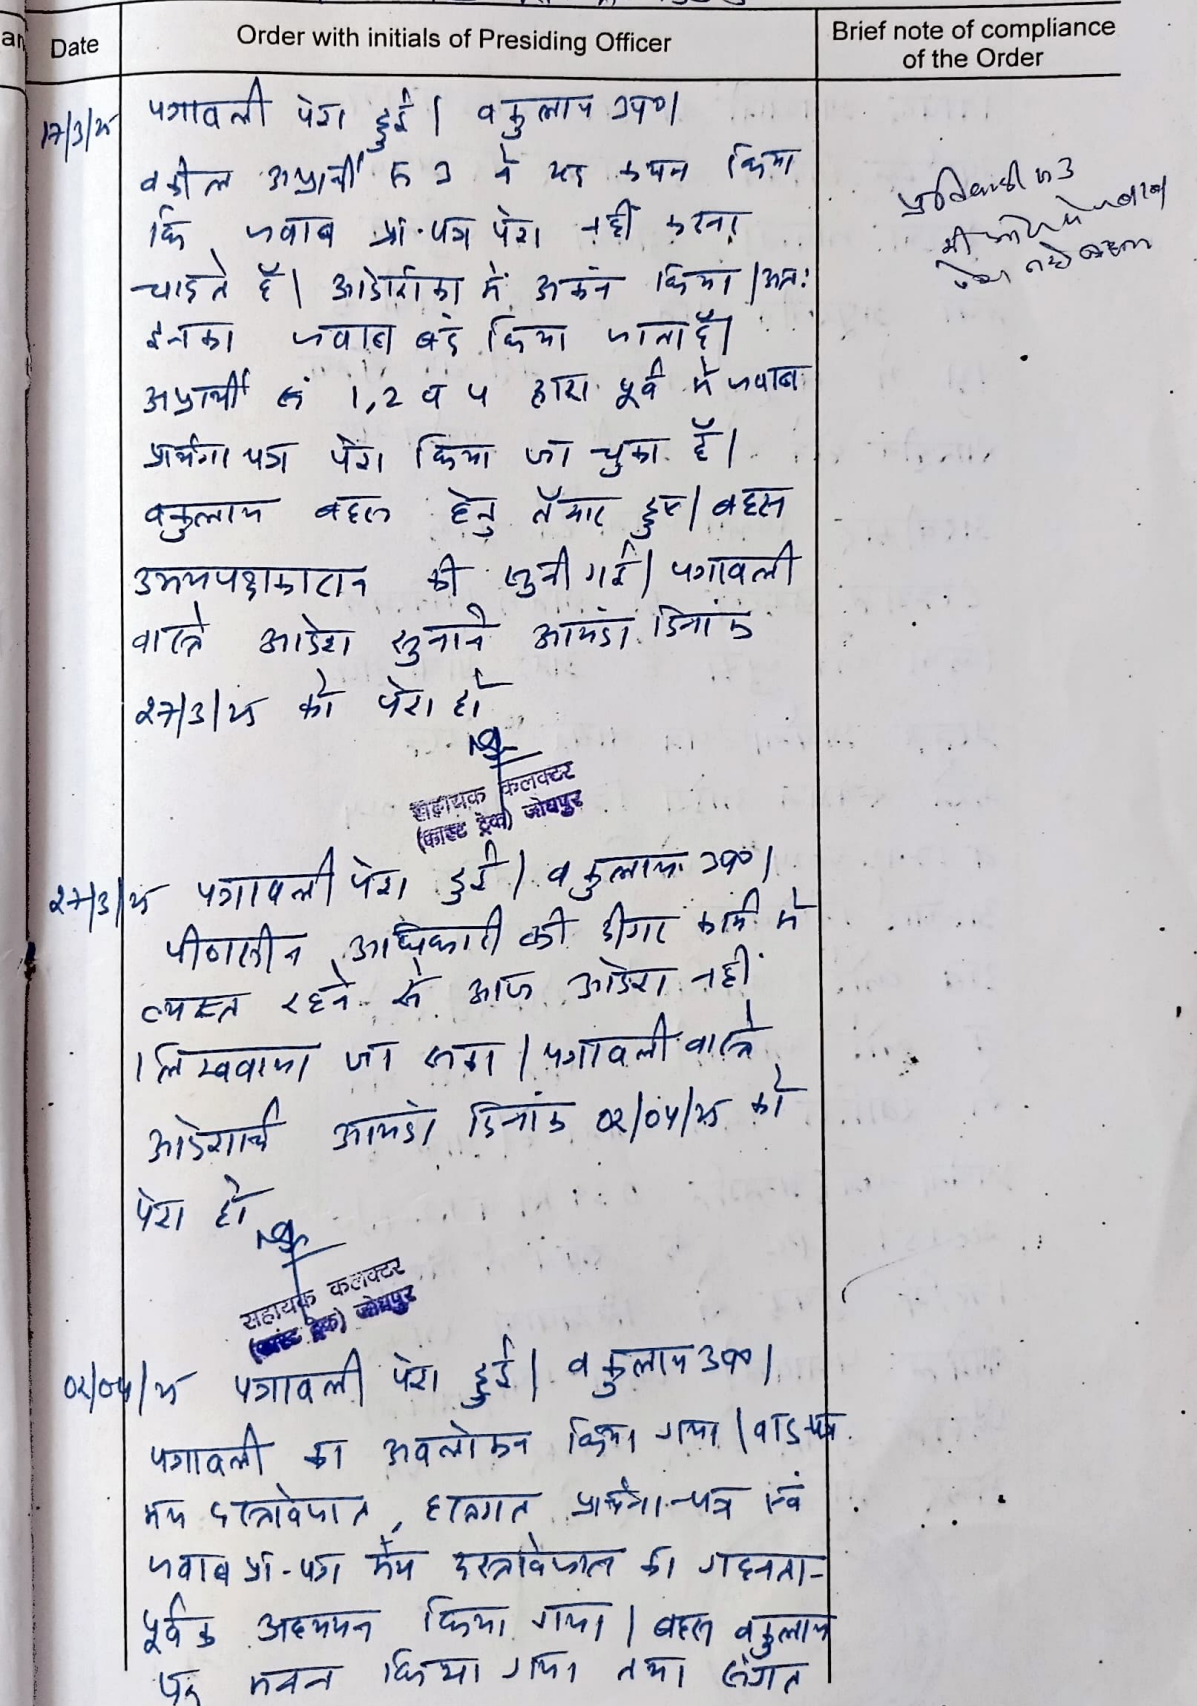 Date
Order with initials of Presiding Officer
Brief note of compliance of the Order
17/3/25 पत्रावली पेश हुई। वकुलाय उप०।
वकील अप्रार्थी सं 3 ने यह कथन किया
कि जवाब प्रा.पत्र पेश नहीं करना
चाहते हैं। आदेशिका में अंकन किया। अतः
इनका जवाब बंद किया जाता है।
अप्रार्थी सं 1,2 व 4 द्वारा पूर्व में जवाब
प्रार्थना पत्र पेश किया जा चुका है।
वकुलाय बहस हेतु तैयार हुए। बहस
उभयपक्षकारान की सुनी गई। पत्रावली
वास्ते आदेश सुनाने आयंदा दिनांक
27/3/25 को पेश हो
सहायक कलक्टर
(फास्ट ट्रेक) जोधपुर
27/3/25 पत्रावली पेश हुई। वकुलाय उप०।
पीठासीन अधिकारी की दीगर कार्य में
व्यस्त रहने से आज आदेश नहीं
लिखवाया जा सका। पत्रावली वास्ते
आदेशार्थ आयंदा दिनांक 02/04/25 को
पेश हो
सहायक कलक्टर
(फास्ट ट्रेक) जोधपुर
02/04/25 पत्रावली पेश हुई। वकुलाय उप०।
पत्रावली का अवलोकन किया गया। वाद-पत्र
मय दस्तावेजात, हस्तगत प्रार्थना-पत्र एवं
जवाब प्रा.-पत्र मय दस्तावेजात का गहनता-
पूर्वक अध्ययन किया गया। बहस वकुलाय
पर मनन किया गया तथा संगत
प्रतिवादी सं 3